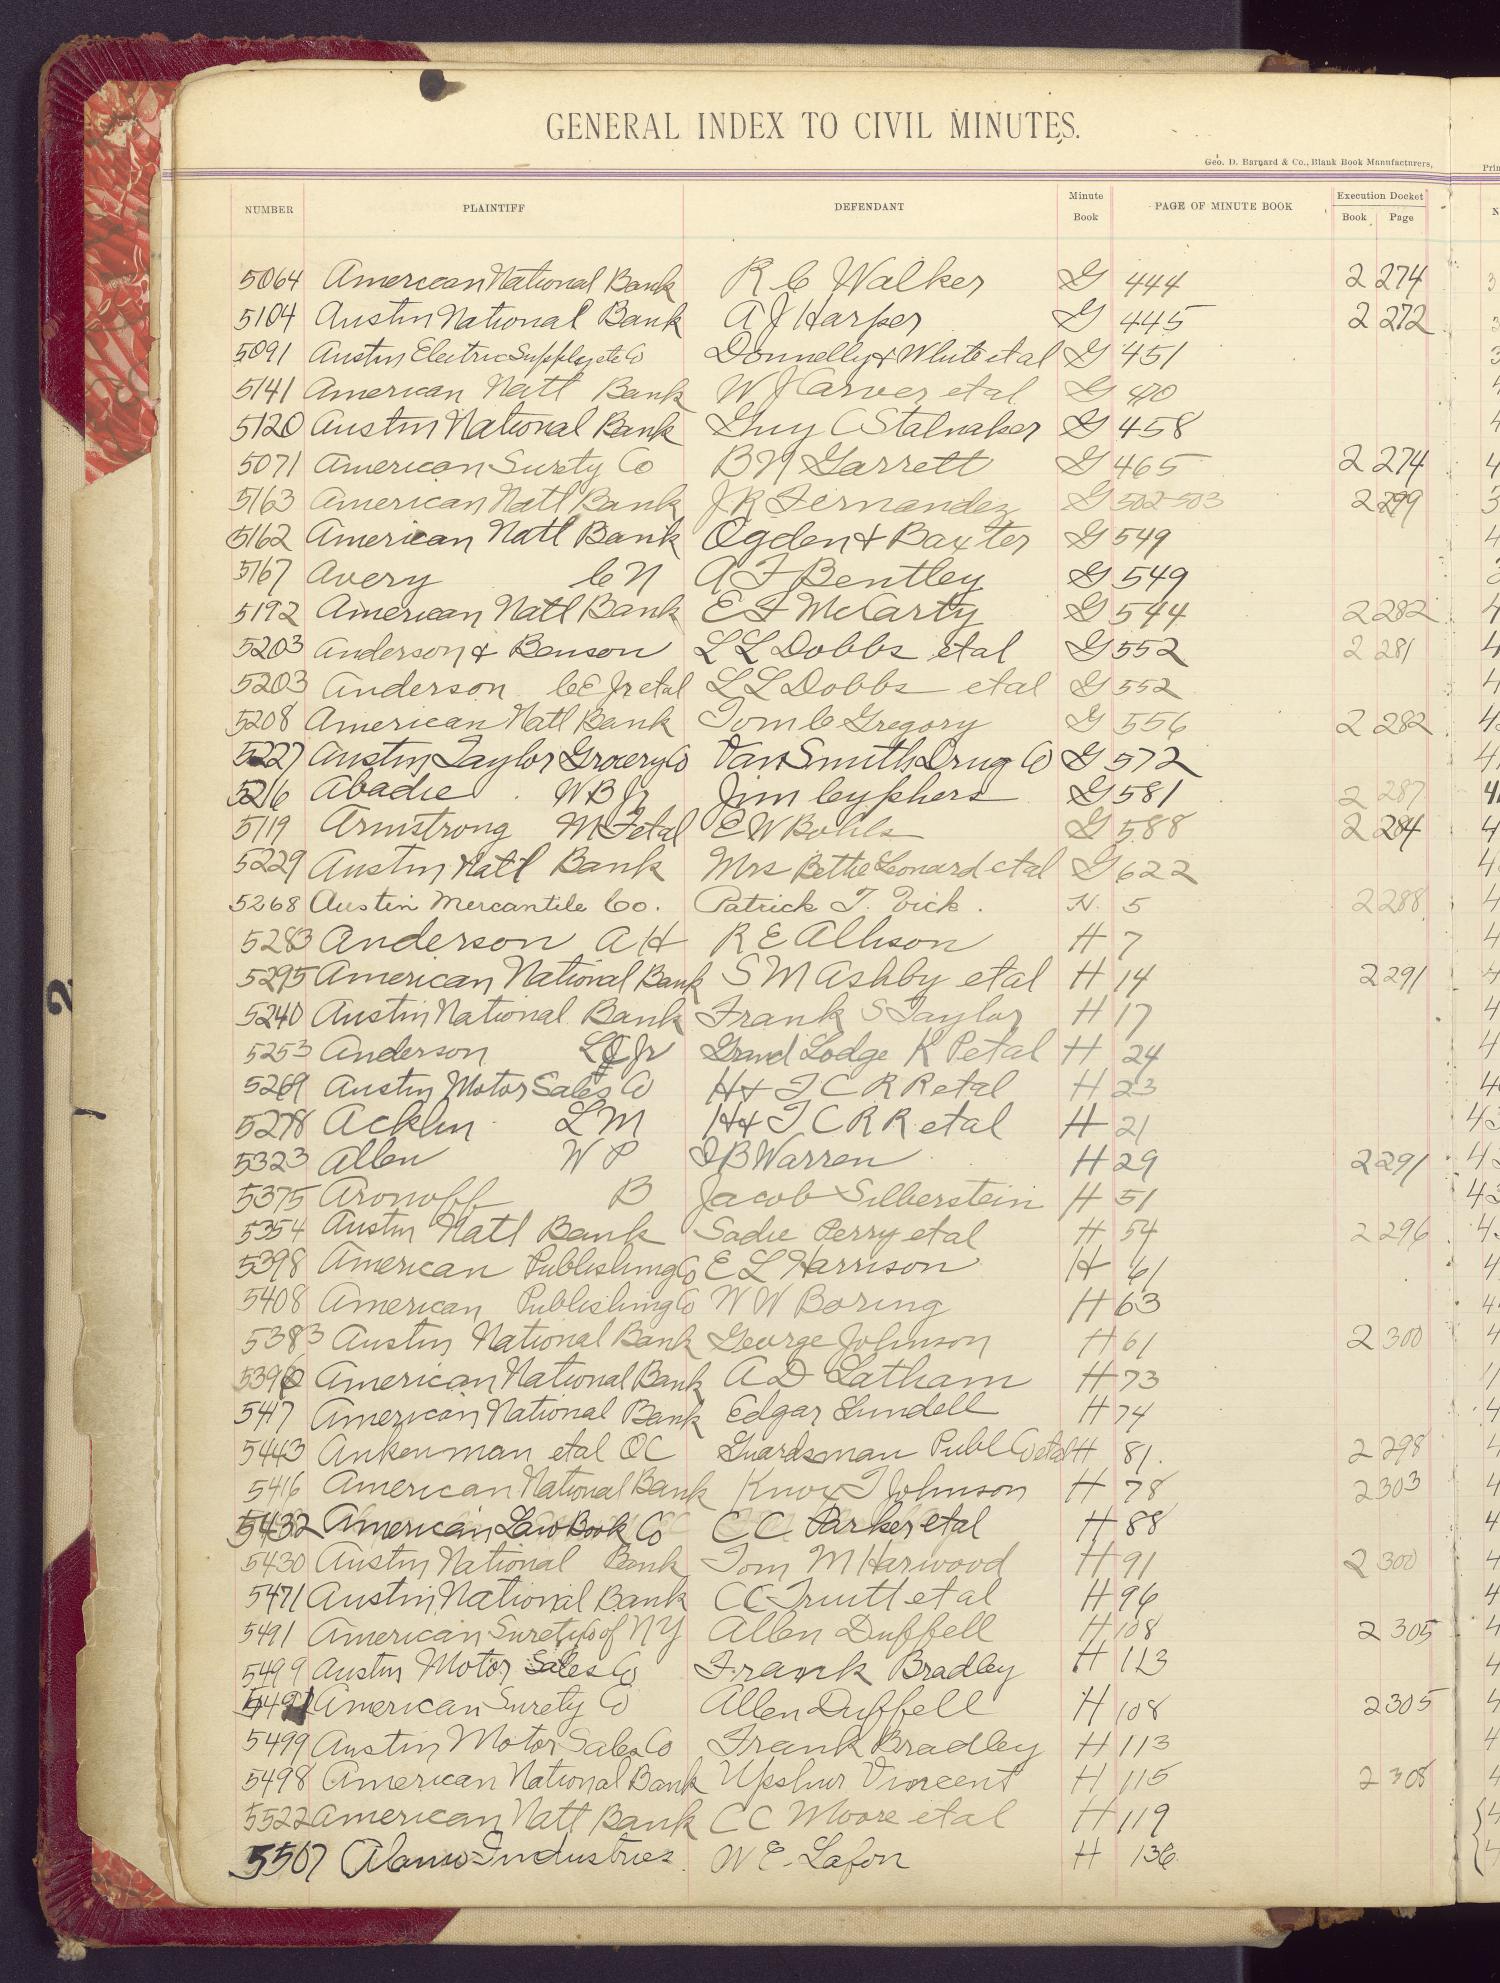 GENERAL INDEX TO CIVIL MINUTES.
Geo. D. Barnard & Co., Blank Book Manufacturers,
NUMBER PLAINTIFF DEFENDANT Minute Book PAGE OF MINUTE BOOK Execution Docket Book Page
5064 American National Bank R C Walker G 444 2 274
5104 Austin National Bank A J Harper G 445 2 272
5091 Austin Electric Supply etc Co Donnelly & White et al G 451
5141 American Natl Bank W J Carver et al G 470
5120 Austin National Bank Guy C Stalnaker G 458
5071 American Surety Co B N Garrett G 465 2 274
5163 American Natl Bank J R Fernandez G 502-503 2 299
5162 American Natl Bank Ogden & Baxter G 549
5167 Avery C N A F Bentley G 549
5192 American Natl Bank E F McCarty G 544 2 282
5203 Anderson & Benson L L Dobbs et al G 552 2 281
5203 Anderson C E Jr et al L L Dobbs et al G 552
5208 American Natl Bank Tom C Gregory G 556 2 282
5227 Austin Taylor Grocery Co Van Smith Drug Co G 572
5216 Abadie W B Jr Jim Cyphers G 581 2 287
5119 Armstrong M F et al E W Bohls G 588 2 284
5229 Austin Natl Bank Mrs Bettie Leonard et al G 622
5268 Austin Mercantile Co. Patrick T. Vick. H. 5 2 288
5283 Anderson A H R E Allison H 7
5295 American National Bank S M Ashby et al H 14 2 291
5240 Austin National Bank Frank S Taylor H 17
5253 Anderson Jr Grand Lodge K P et al H 24
5269 Austin Motor Sales Co H & T C R R et al H 23
5278 Acklin L M H & T C R R et al H 21
5323 Allen W P I B Warren H 29 2 291
5375 Aronoff B Jacob Silberstein H 51
5354 Austin Natl Bank Sadie Perry et al H 54 2 296
5398 American Publishing Co E L Harrison H 61
5408 American Publishing Co W W Boring H 63
5383 Austin National Bank George Johnson H 61 2 300
5396 American National Bank A D Latham H 73
5417 American National Bank Edgar Lundell H 74
5443 Ankenman et al O C Guardsman Publ Co et al H 81. 2 298
5416 American National Bank Knox T Johnson H 78 2 303
5432 American Law Book Co C C Parker et al H 88
5430 Austin National Bank Tom M Harwood H 91 2 300
5471 Austin National Bank C C Truitt et al H 96
5491 American Surety Co of N Y Allen Duffell H 108 2 305
5499 Austin Motor Sales Co Frank Bradley H 113
5491 American Surety Co Allen Duffell H 108 2 305
5499 Austin Motor Sales Co Frank Bradley H 113
5498 American National Bank Upshur Vincent H 115 2 308
5522 American Natl Bank C C Moore et al H 119
5567 Alamo Industries. W E. Lafon H 136.